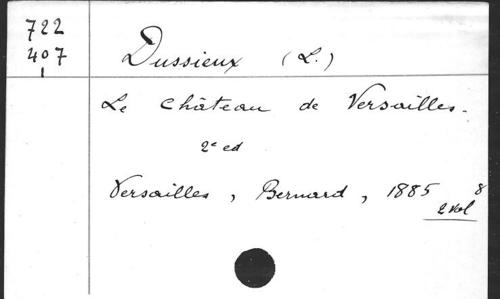 722
407
Dussieux (L.)
Le Château de Versailles.
2e ed
Versailles, Bernard, 1885 8
2 vol